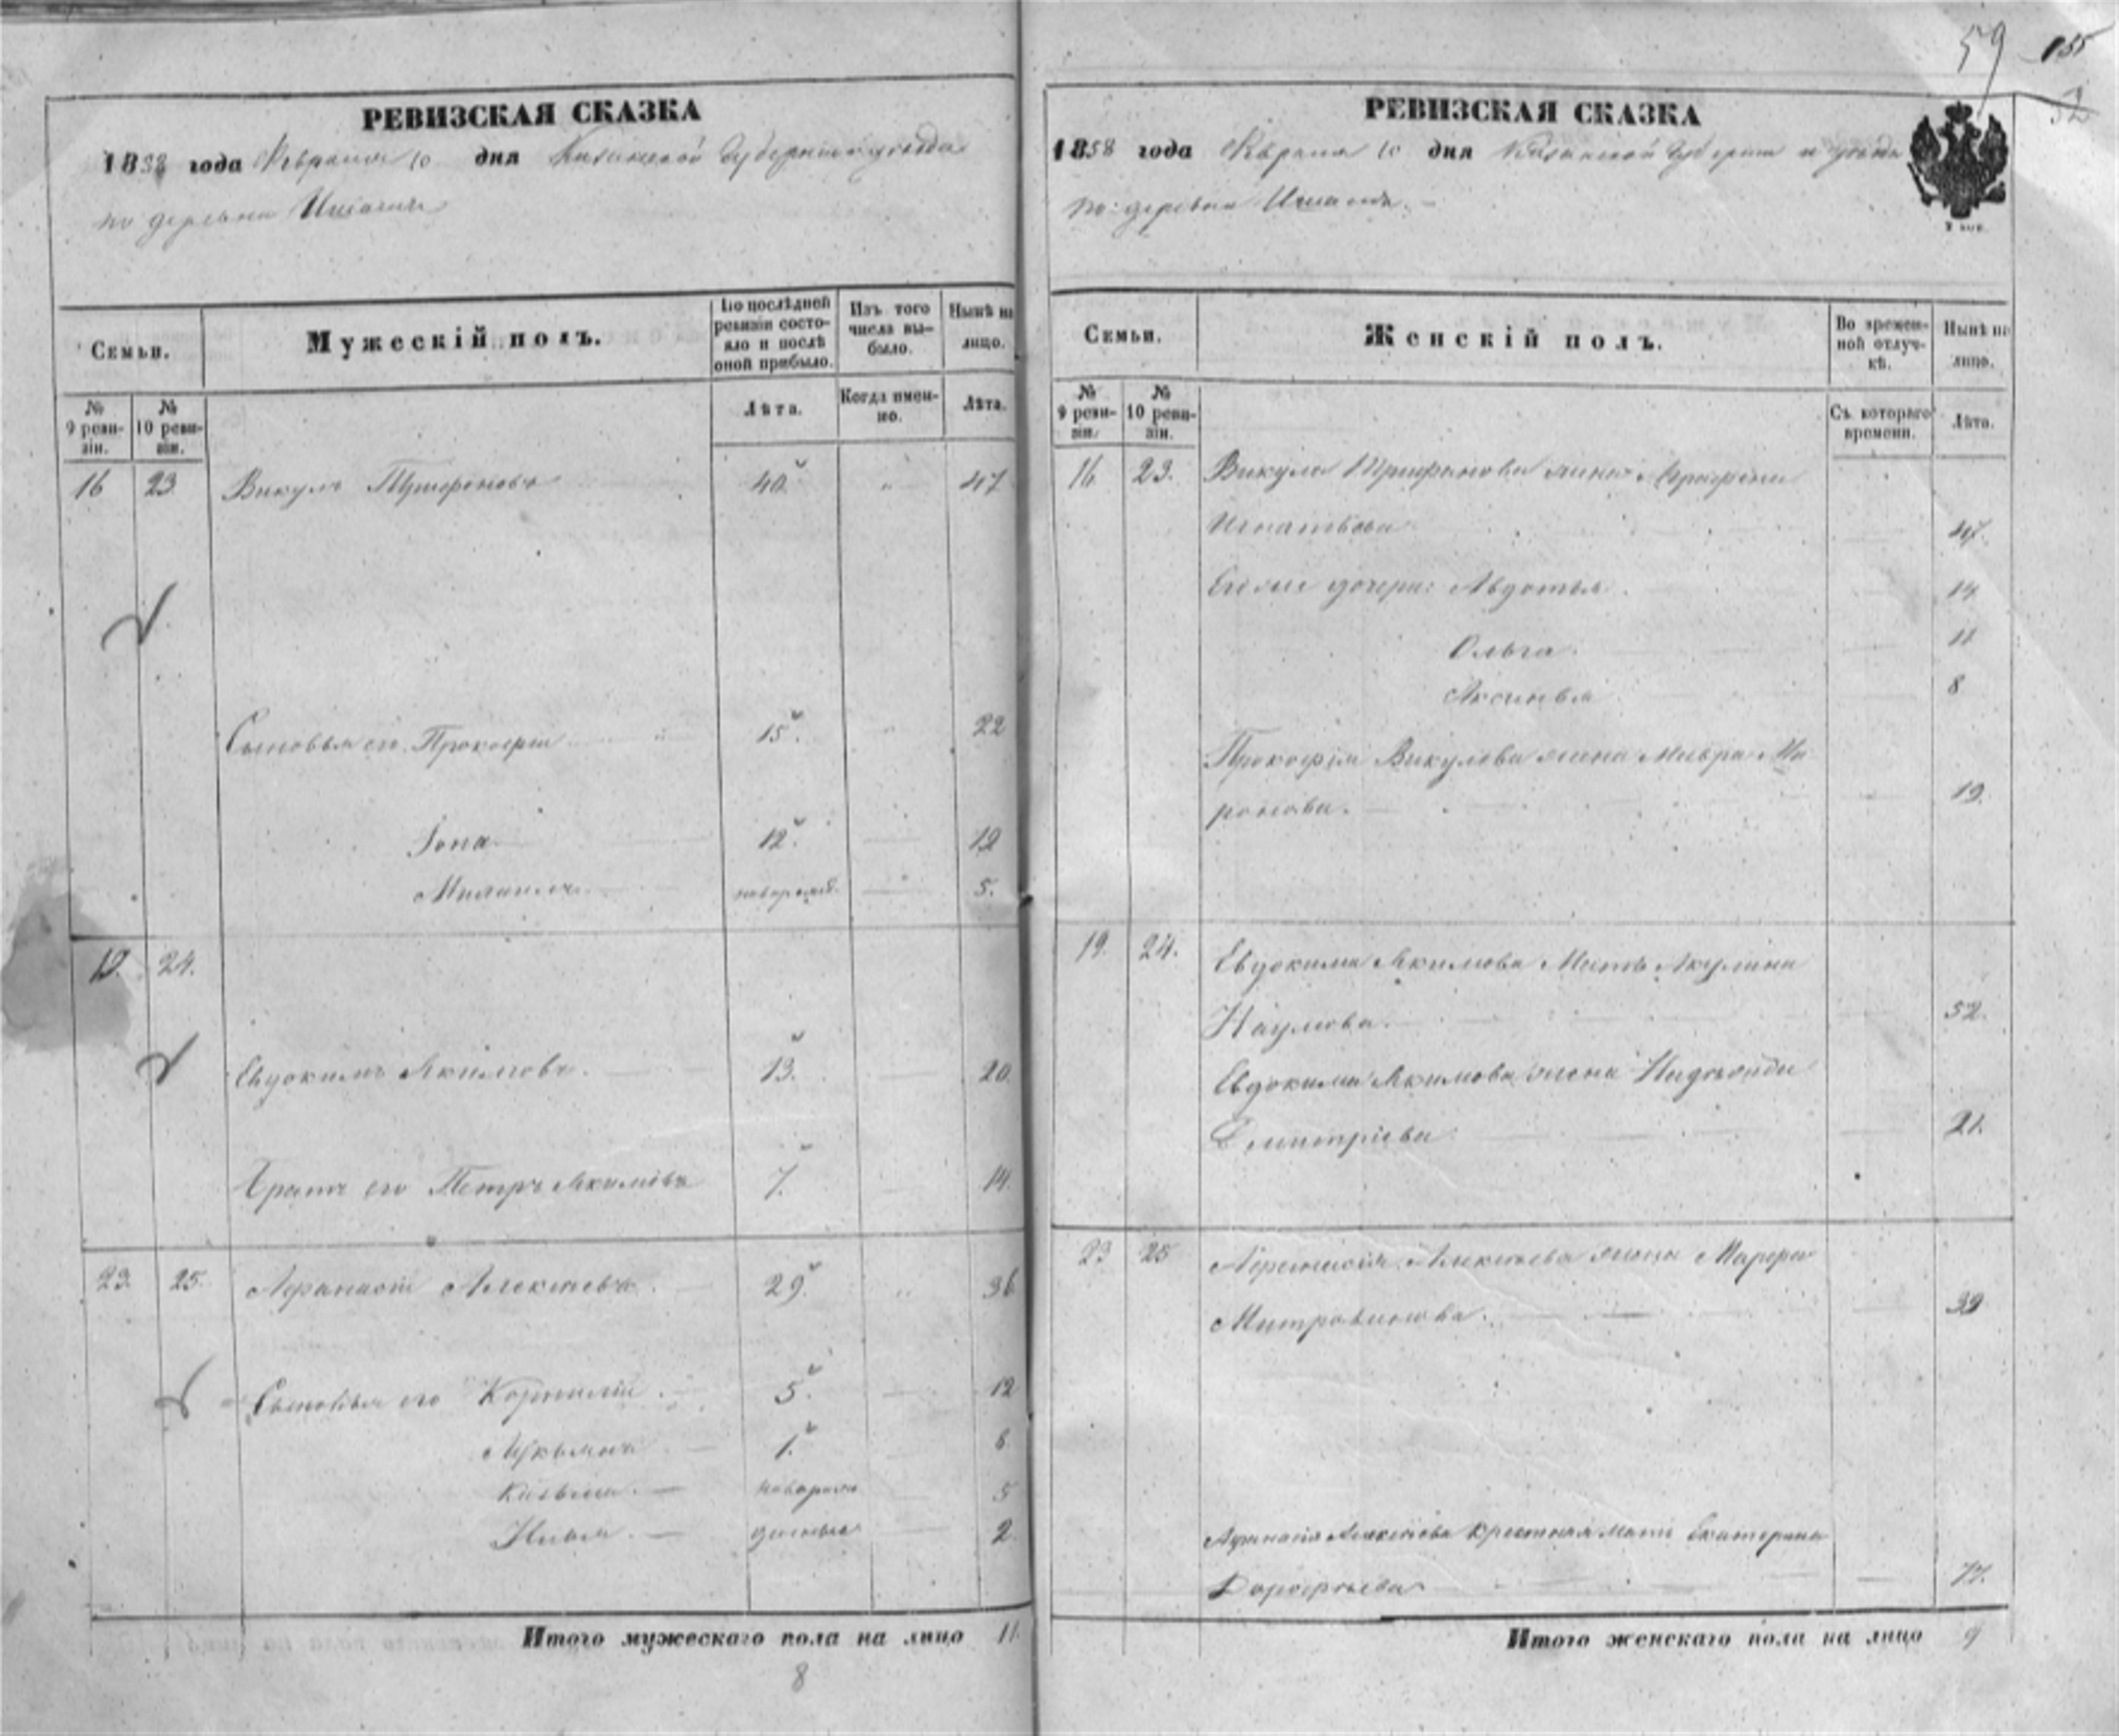 59 155
32
РЕВИЗСКАЯ СКАЗКА
1858 года Февраля 10 дня Казанской Губерніи и уѣзда
по деревни
Семьи.
Мужескій полъ.
По послѣдней ревизіи состояло и послѣ оной прибыло.
Изъ того числа выбыло.
Нынѣ на лицо.
№ 9 ревизіи.
№ 10 ревизіи.
Лѣта.
Когда именно.
Лѣта.
16 23 Викулъ Трифоновъ 40 " 47
Сыновья его Прокофій 15. 22
Іона 12. 19
новорожд. 5.
19. 24.
Евдокимъ Акимовъ. 13. 20
Братъ его Петръ Акимовъ 7. 14.
23. 25. Афанасій Алексѣевъ. 29. 36
Сыновья его Корнилій. 5. 12
Лукьянъ 1. 8
новорож 5
Илья. денные 2
Итого мужескаго пола на лицо 11.
8
РЕВИЗСКАЯ СКАЗКА
1858 года Февраля 10 дня Казанской Губерніи и уѣзда
по деревни
Семьи.
Женскій полъ.
Во временной отлучкѣ.
Нынѣ на лицо.
№ 9 ревизіи.
№ 10 ревизіи.
Съ котораго времени.
Лѣта.
16. 23. Викула Трифонова жена Аграфена
Игнатьева 47.
дочери: Авдотья 14
Ольга. 11
Аксинья 8
Прокофія Викулова жена Мавра Ми
ронова. 19.
19. 24. Евдокима Акимова Мать Акулина
Наумова. 52.
Евдокима Акимова жена Надежда
Дмитріева 21.
23 25 Афанасія Алексѣева жена Марфа
Митрофанова. 39
Афанасія Алексѣева крестная мать Екатерина
Дорофѣева 77.
Итого женскаго пола на лицо 9